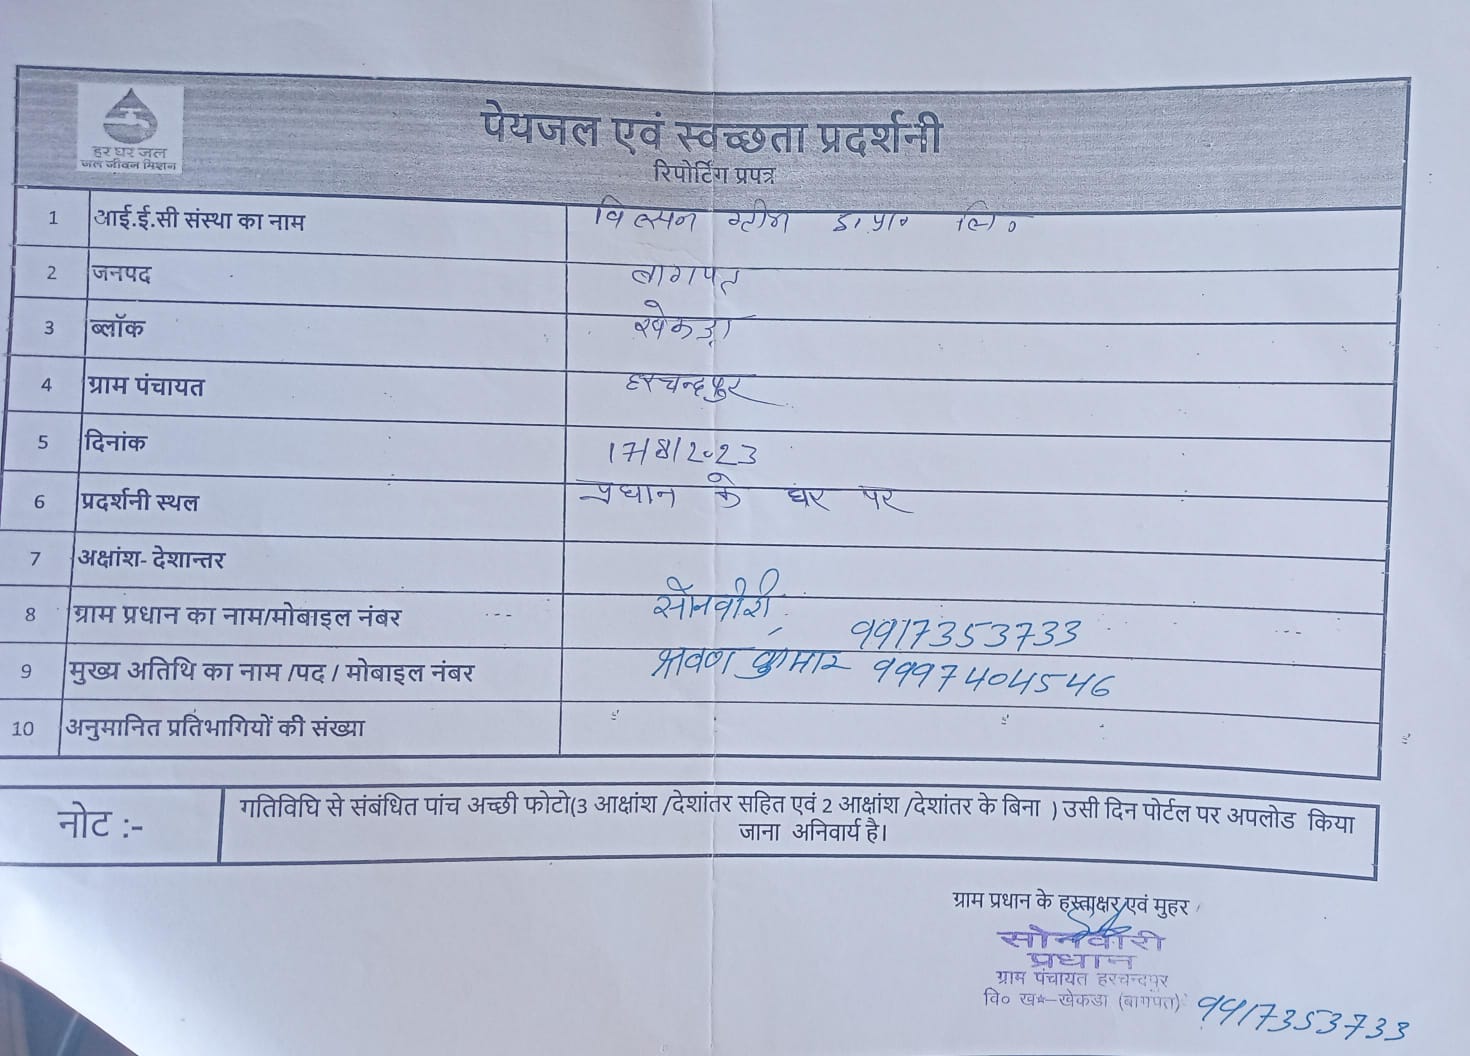 हर घर जल
जल जीवन मिशन
पेयजल एवं स्वच्छता प्रदर्शनी
रिपोर्टिंग प्रपत्र
1 आई.ई.सी संस्था का नाम विल्सन ग्रीन इ० प्रा० लि०
2 जनपद बागपत
3 ब्लॉक खेकड़ा
4 ग्राम पंचायत हरचन्दपुर
5 दिनांक 17/8/2023
6 प्रदर्शनी स्थल प्रधान के घर पर
7 अक्षांश- देशान्तर
8 ग्राम प्रधान का नाम/मोबाइल नंबर सोनवीरी 9917353733
9 मुख्य अतिथि का नाम /पद / मोबाइल नंबर श्रवण कुमार 9997404546
10 अनुमानित प्रतिभागियों की संख्या
नोट :- गतिविधि से संबंधित पांच अच्छी फोटो(3 आक्षांश /देशांतर सहित एवं 2 आक्षांश /देशांतर के बिना ) उसी दिन पोर्टल पर अपलोड किया
जाना अनिवार्य है।
ग्राम प्रधान के हस्ताक्षर एवं मुहर
सोनवीरी
प्रधान
ग्राम पंचायत हरचन्दपुर
वि० ख०-खेकडा (बागपत) 9917353733